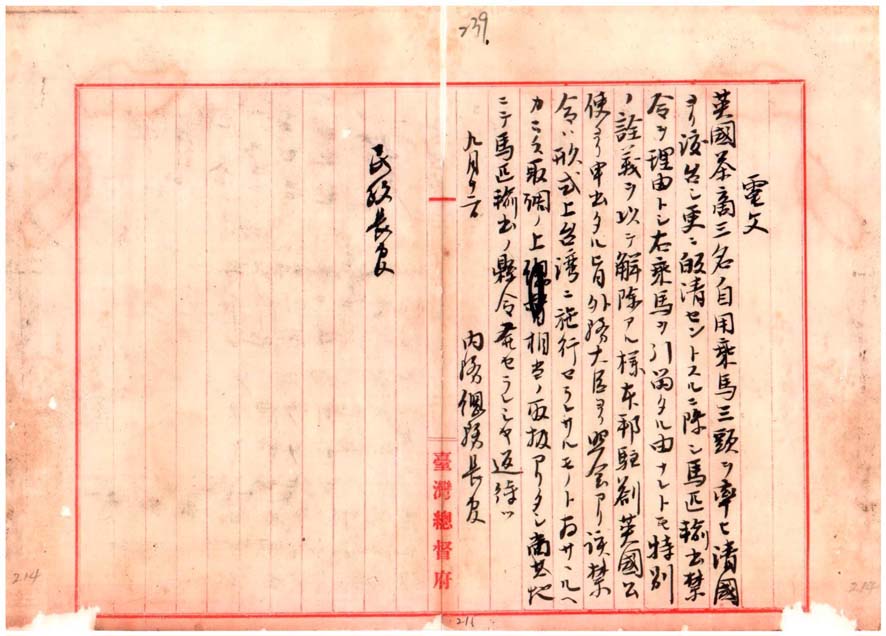 239.
電文
英國茶商三名自用乘馬三頭ヲ率ヒ清國
ヨリ渡台シ更ニ皈清セントスルニ際シ馬匹輸出禁
令ヲ理由トシ右乘馬ヲ引留タル由ナレトモ特別
ノ詮義ヲ以テ解除アル樣本邦駐劄英國公
使ヨリ申出タル旨外務大臣ヨリ照会アリ該禁
令ハ形式上台湾ニ施行セラレサルモノト
取調ノ上相当ノ取扱アリタシ尚其地
ニテ馬匹輸出ノ縣令発セラレシヤ返待ツ
九月
内務總務長官
民政長官
臺灣總督府
214
214
211